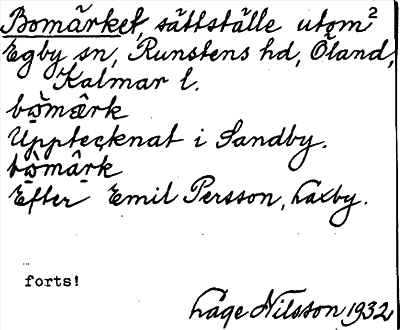 Bomärket, sättställe utom²
Egby sn, Runstens hd, Öland,
Kalmar l.
bo̤mærk
Upptecknat i Sandby.
bo̤märk
Efter Emil Persson, Laxby.
forts!
Låge Nilsson 1932